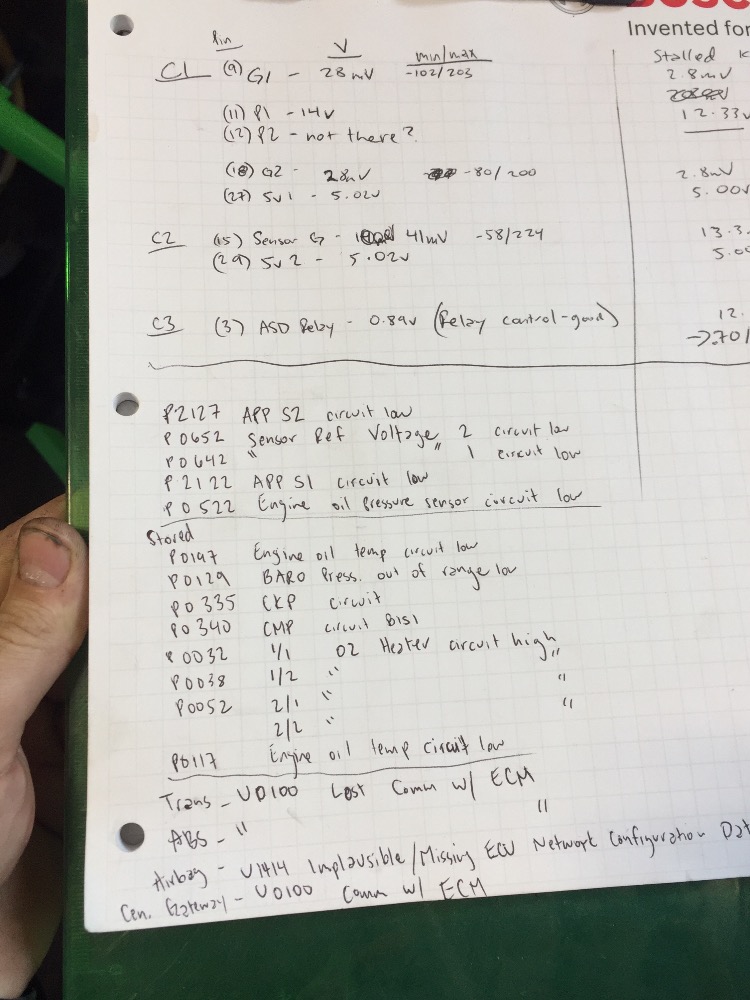 Invented for
Pin V min/max Stalled K
C1 (9) G1 - 28mV -102/203 2.8mV
(11) P1 - 14V 12.33v
(12) P2 - not there?
(18) G2 - 28mV -80/200 2.8mV
(27) 5v1 - 5.02v 5.00v
C2 (15) Sensor G - 41mV -58/224 13.3
(29) 5v2 - 5.02v 5.00
C3 (3) ASD Relay - 0.89v (Relay control-good) 12.
→.70/
P2127 APP S2 circuit low
P0652 Sensor Ref Voltage 2 circuit low
P0642 " " 1 circuit low
P2122 APP S1 circuit low
P0522 Engine oil pressure sensor circuit low
Stored
P0197 Engine oil temp circuit low
P0129 BARO Press. out of range low
P0335 CKP circuit
P0340 CMP circuit B1S1
P0032 1/1 O2 Heater circuit high
P0038 1/2 " "
P0052 2/1 " "
2/2 " "
P0117 Engine oil temp circuit low
Trans - U0100 Lost Comm w/ ECM
ABS - " "
Airbag - U1414 Implausible/Missing ECU Network Configuration Dat
Cen. Gateway - U0100 Comm w/ ECM